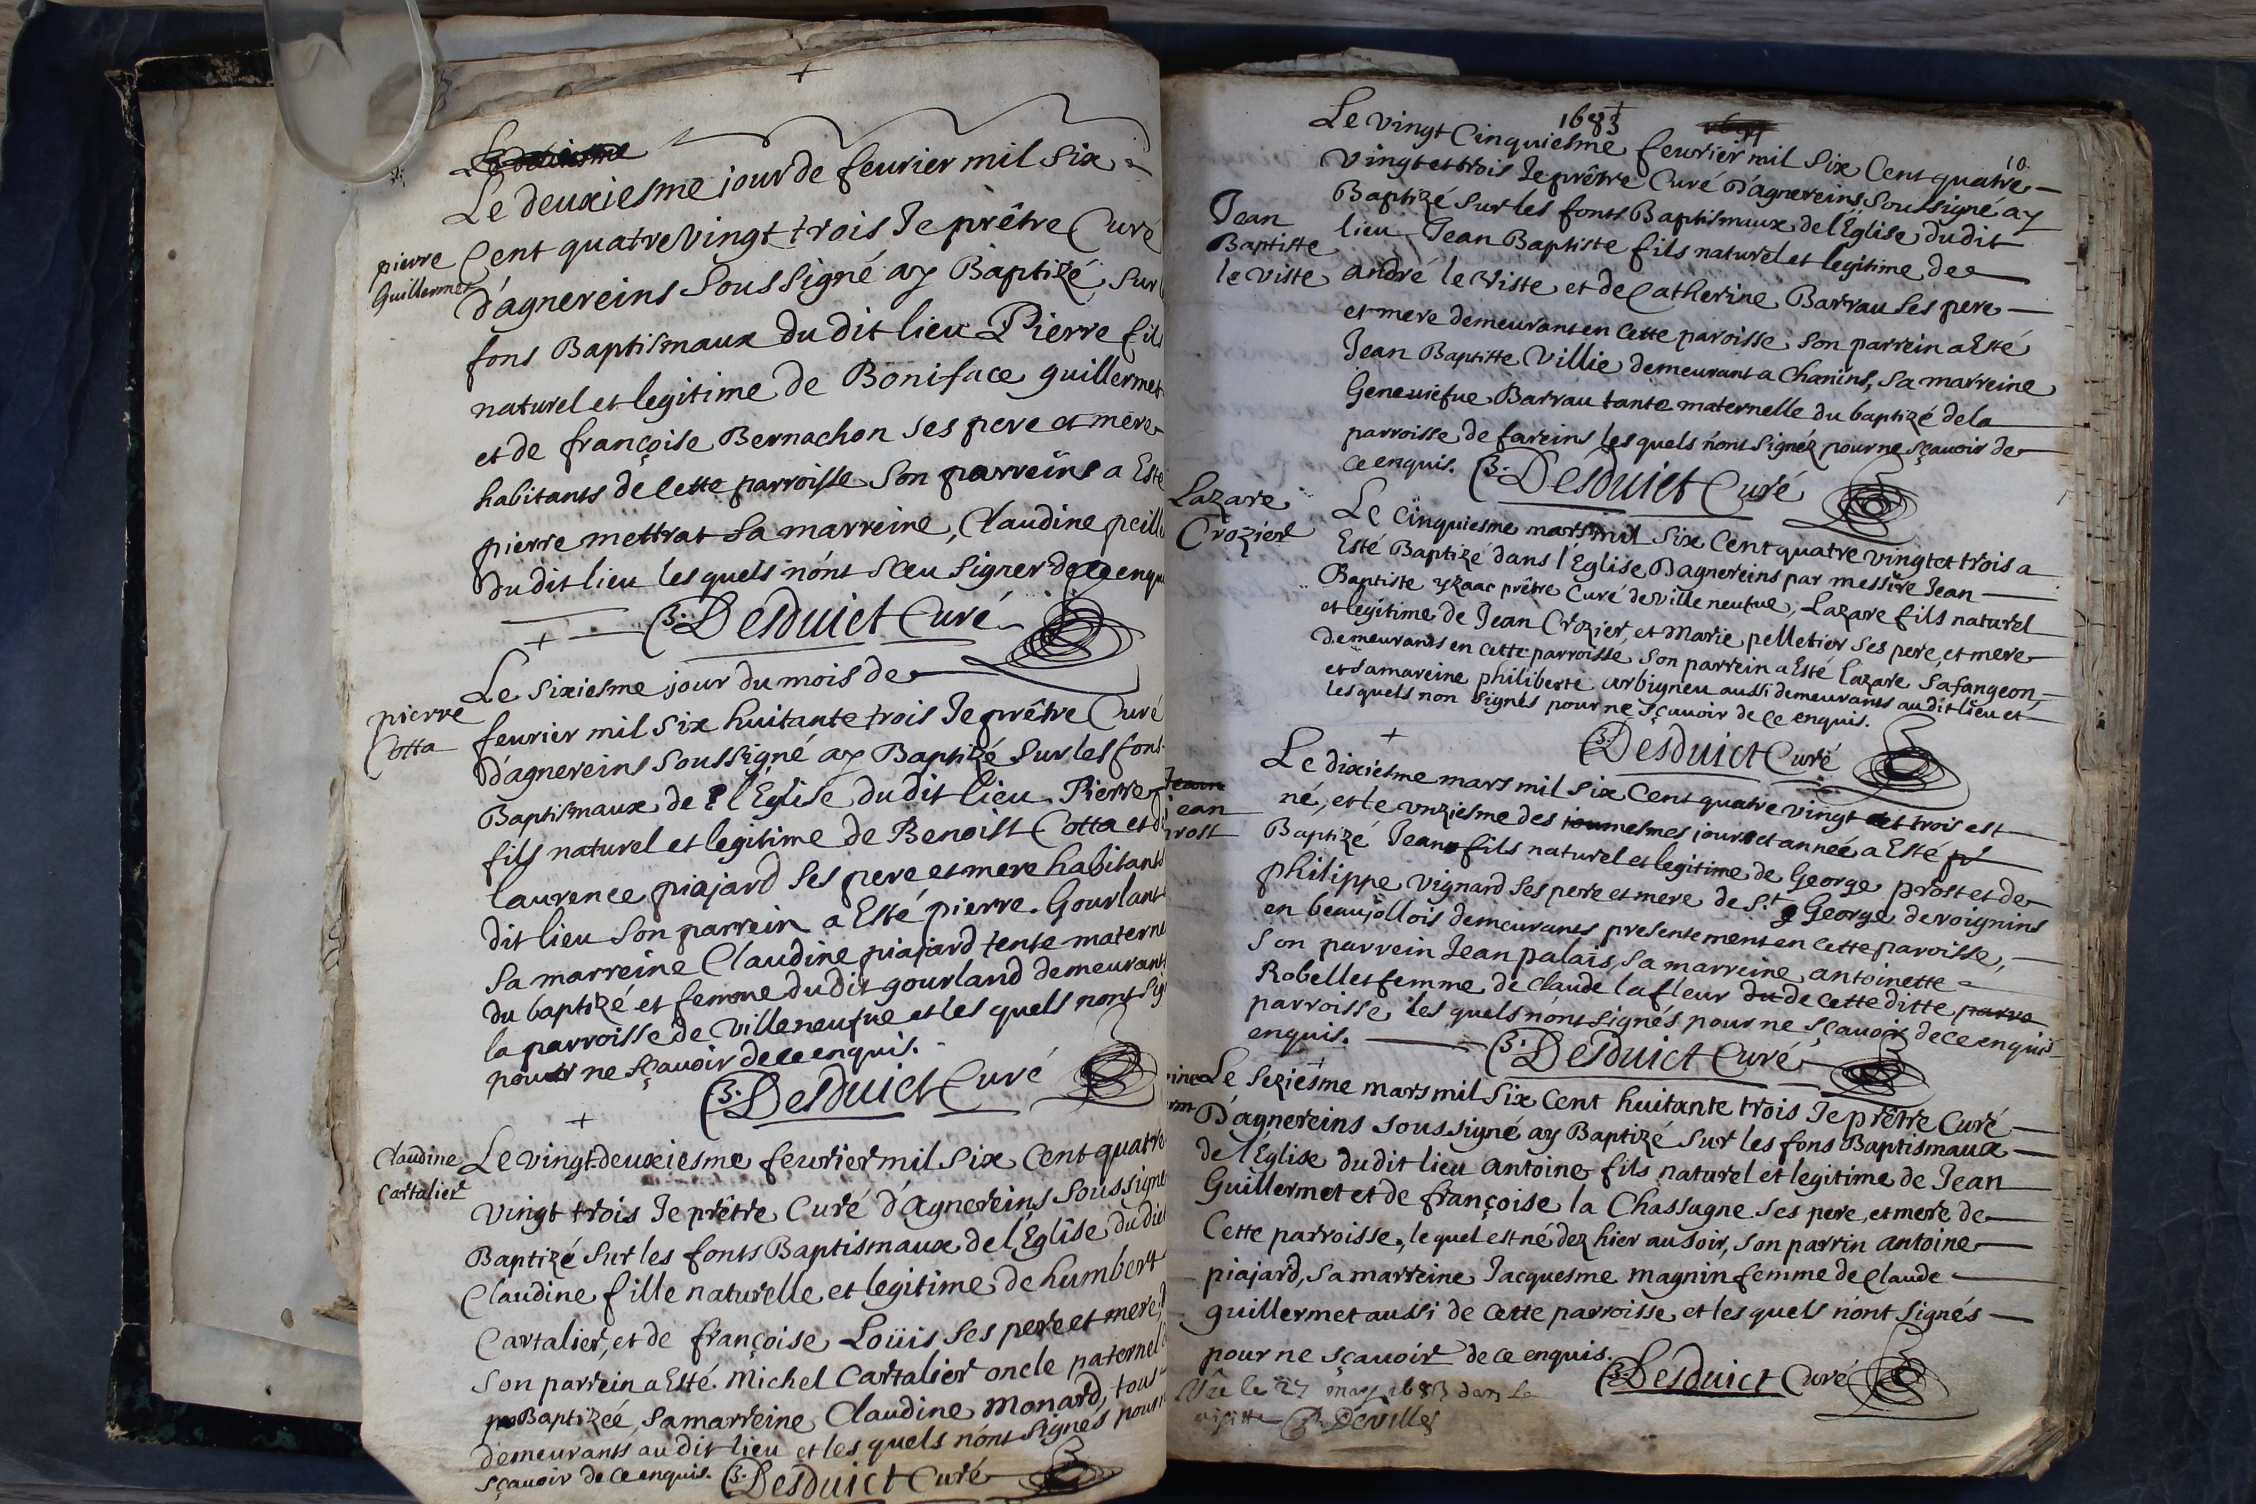 Le deuxiesme jour de feurier mil six
pierre
Guillermet
Cent quatre Vingt trois Je prêtre Curé
d'agnereins soussigné ay Baptizé sur
fons Baptismaux du dit lieu Pierre fils
naturel et legitime de Boniface guillermet
et de françoise Bernachon ses pere et mere
habitants de Cette parroisse son parreins a Esté
pierre mettrat sa marreine, Claudine
du dit lieu les quels n'ont sceu signer de ce
Desduict Curé
Le sixiesme jour du mois de
pierre
Cotta
feurier mil six huitante trois Je prêtre Curé
d'agnereins soussigné ay Baptizé sur les fons
Baptismaux de l'Eglise du dit lieu Pierre
fils naturel et legitime de Benoist Cotta et
laurence piajard ses pere et mere habitants
dit lieu son parrein a Esté pierre Gourlant
sa marreine Claudine piajard tente
du baptizé et femme du dit gourland demeurants
la parroisse de Villeneufue et les quels n'ont
pour ne sçauoir de ce enquis.
Desduict Curé
Claudine
Cartalier
Le vingt-deuxiesme feurier mil six Cent quatre
vingt trois Je prêtre Curé d'agnereins soussigné
Baptizé sur les fonts Baptismaux de l'Eglise du dict
Claudine fille naturelle et legitime de humbert
Cartalier, et de françoise Loüis ses pere et mere,
son parrein a Esté Michel Cartalier oncle paternel
Baptizeé, sa marreine Claudine Monard, tous
demeurants au dit lieu et les quels n'ont signés pour
sçauoir de ce enquis. Desduict Curé
1683
10.
Le vingt Cinquiesme feurier mil six Cent quatre
vingt et trois Je prêtre Curé d'agnereins soussigné ay
Baptizé sur les fonts Baptismaux de l'Église du dit
Jean
Baptiste
le viste
lieu Jean Baptiste fils naturel et legitime de
andré le Viste et de Catherine Barrau ses pere
et mere demeurant en cette paroisse son parrein a Esté
Jean Baptiste Villie demeurant a Chanins, sa marreine
Geneuiefue Barrau tante maternelle du baptizé de la
parroisse de fareins les quels n'ont signéz pour ne sçauoir de
ce enquis. Desduict Curé
Lazare
Crozier
Le cinquiesme mars mil six Cent quatre vingt et trois a
Esté Baptizé dans l'Église Dagnereins par messire Jean
Baptiste yzaac prêtre Curé de ville neufue, Lazare fils naturel
et legitime de Jean Crozier, et Marie pelletier ses pere, et mere
demeurants en cette parroisse son parrein a Esté lazare safangeon,
et sa mareine philiberte arbigneu aussi demeurants au dit lieu et
les quels non signés pour ne sçauoir de ce enquis.
Desduict Curé
Le dixiesme mars mil six Cent quatre vingt et trois est
né, et le vnziesme des mesmes jour et année a Esté
Jean
prost
Baptizé Jean fils naturel et legitime de George prost et de
philippe vignard ses pere et mere de S.t George de roignins
en beaujollois demeurants presentement en cette paroisse,
son parrein Jean palais, sa marreine antoinette
Robellet femme de Claude lafleur de cette ditte
parroisse les quels n'ont signés pour ne sçauoir de ce enquis
enquis. Desduict Curé
Le seziesme mars mil six cent huitante trois Je prêtre Curé
D'agnereins soussigné ay Baptizé sur les fons Baptismaux
de l'Église du dit lieu antoine fils naturel et legitime de Jean
Guillermet et de françoise la Chassagne ses pere, et mere de
Cette parroisse, le quel est né dez hier au soir, son parrin antoine
piajard, sa marreine Jacquesme magnin femme de Claude
guillermet aussi de cette parroisse et les quels n'ont signés
pour ne sçauoir de ce enquis.
Desduict Curé
Vüe le 27 may 1683 dans la
visitte Deville